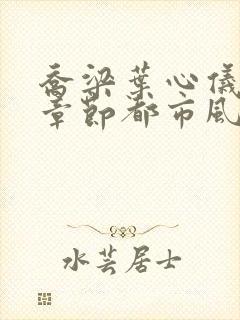 乔梁葉心儀
章節都市風
水芸居士